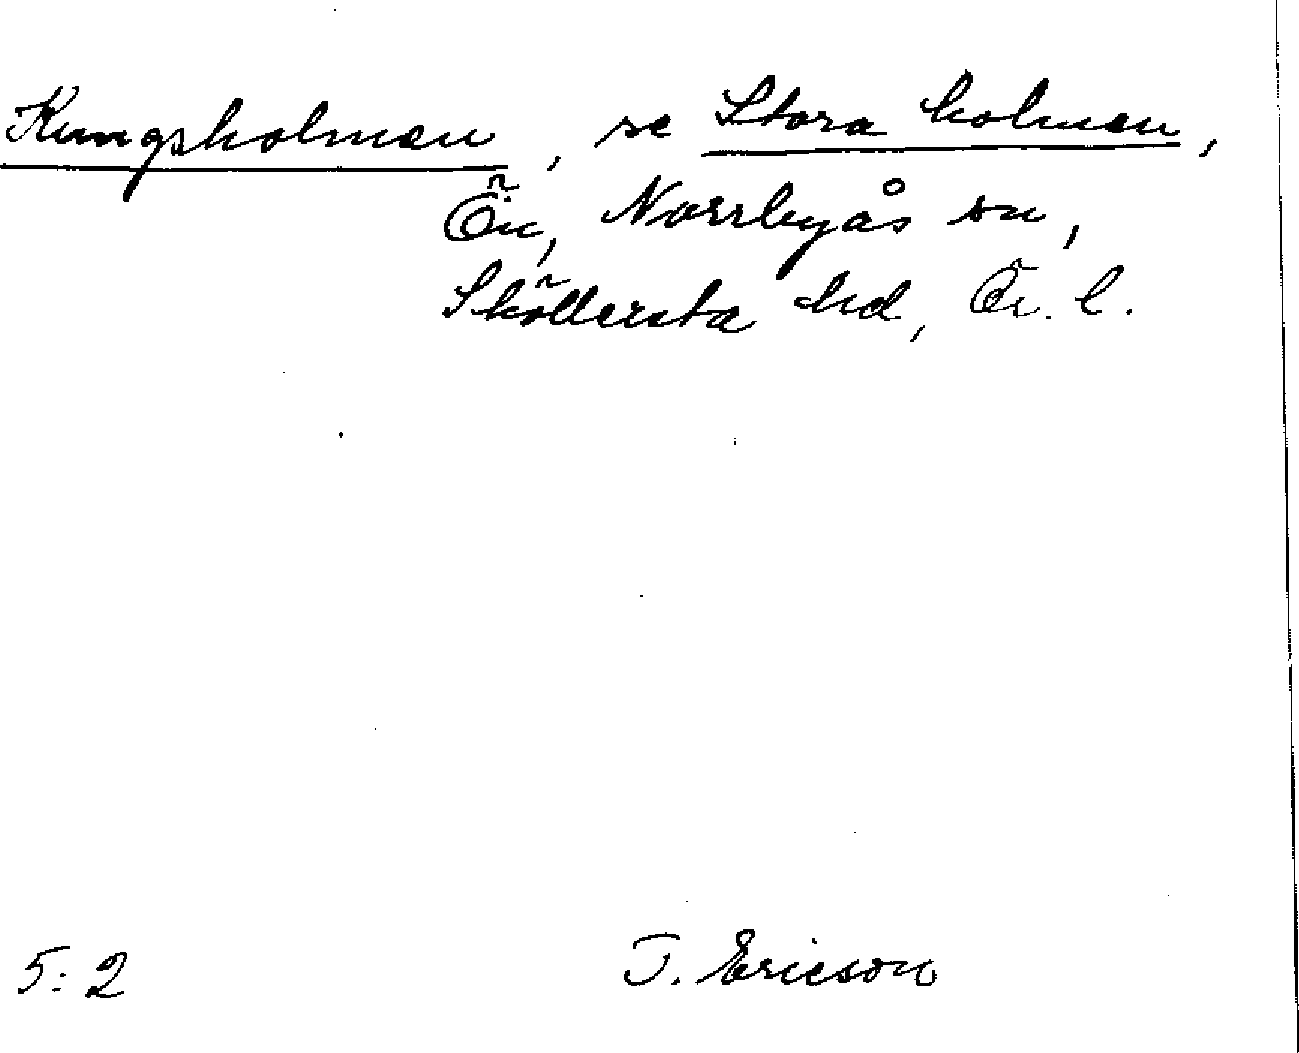 Kungsholmen, se Stora holmen,
Ön, Norrbyås sn,
Sköllersta hd, Ör. l.
5:2 T. Ericson